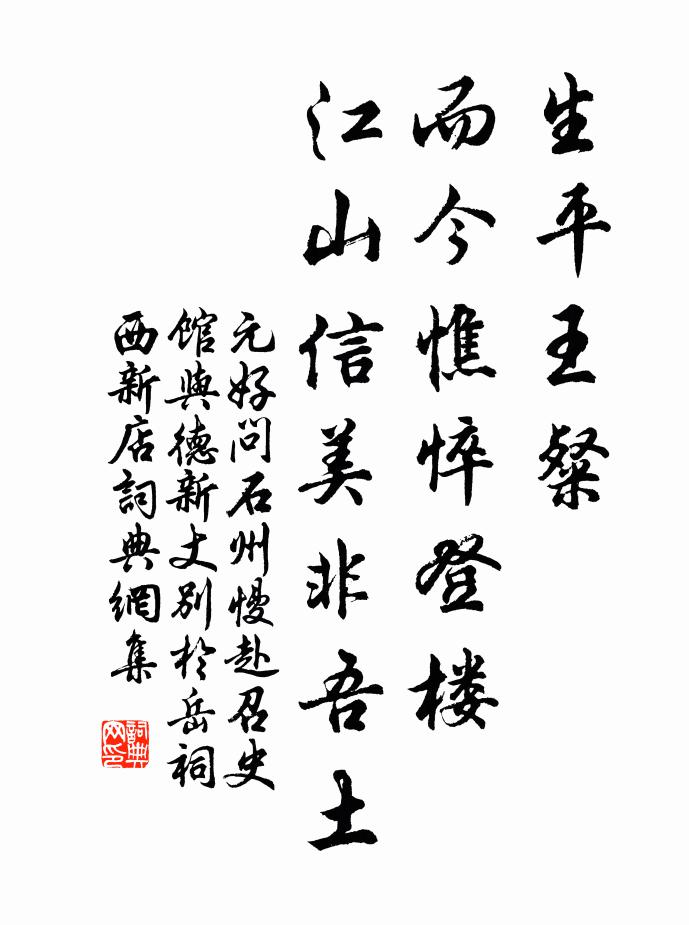 生平王粲
而今憔悴登楼
江山信美非吾土
元好问石州慢赴召史
馆與德新丈别於岳祠
西新店詞典網集
詞典網印